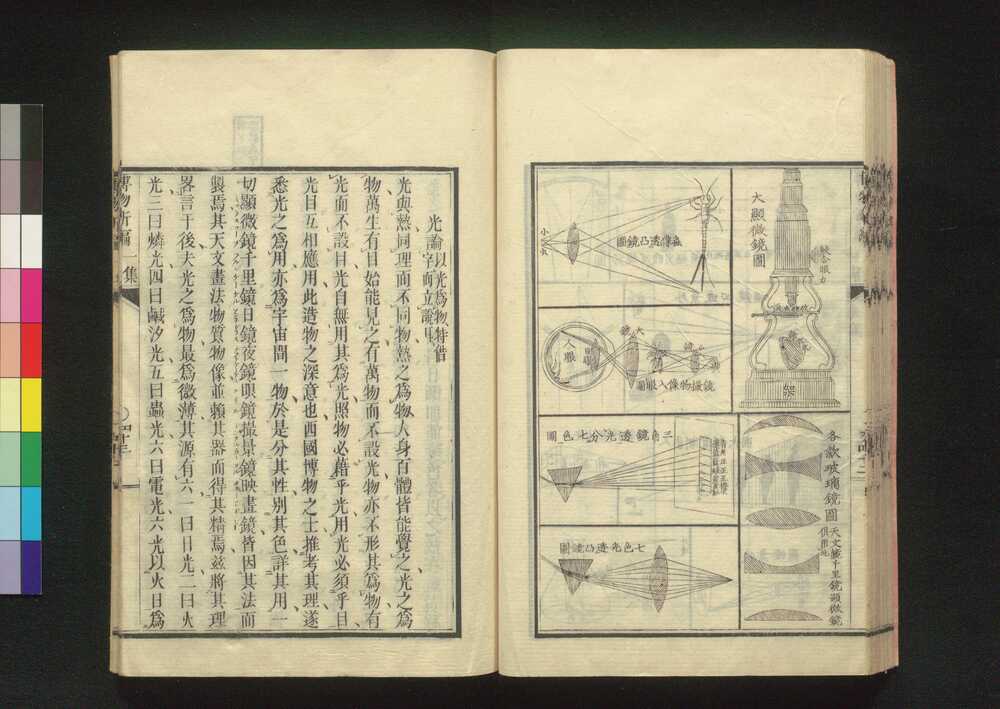 大顯微鏡圖
較合眼力
架
各欵玻璃鏡圖
天文鏡千里鏡顯微鏡
俱用此
蟲像透凸鏡圖
鏡攝物像入眼圖
人眼
三角鏡透光分七色圖
七色光透凸鏡圖
光論以光爲物特借
字而立論耳
光與熱同理而不同物熱之爲物人身百體皆能覺之光之爲
物萬生有目始能見之有萬物而不設光物亦不形其爲物有
光而不設目光自無用其爲光照物必藉乎光用光必須乎目
光目互相應用此造物之深意也西國博物之士推考其理遂
悉光之爲用亦爲宇宙間一物於是分其性別其色詳其用一
切顯微鏡千里鏡日鏡夜鏡眼鏡撮景鏡映畫鏡皆因其法而
製焉其天文畫法物質物像並賴其器而得其精焉茲將其理
畧言于後夫光之爲物最爲微薄其源有六一曰日光二曰火
光三曰燐光四曰鹹汐光五曰蟲光六曰電光六光以火日爲
博物新編一集
四十三